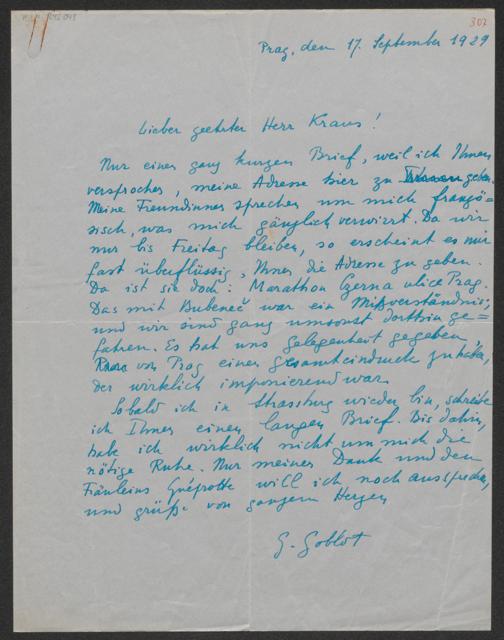 302
Prag, den 17. September 1929
Lieber geehrter Herr Kraus!
Nur einen ganz kurzen Brief, weil ich Ihnen
versprochen, meine Adresse hier zu geben.
Meine Freundinnen sprechen um mich franzö-
sisch, was mich gänzlich verwirrt. Da wir
nur bis Freitag bleiben, so erscheint es mir
fast überflüssig, Ihnen die Adresse zu geben.
Da ist sie doch: Marathon Czerna ulice Prag.
Das mit Bubeneč war ein Mißverständnis,
und wir sind ganz umsonst dorthin ge-
fahren. Es hat uns gelegenheit gegeben,
von Prag einen gesamteindruck zu haben,
der wirklich imponierend war.
Sobald ich in Strassburg wieder bin, schreibe
ich Ihnen einen langen Brief. Bis dahin,
habe ich wirklich nicht um mich die
nötige Ruhe. Nur meinen Dank und den
Fräuleins will ich noch aussprechen,
und grüße von ganzem Herzen
G. Goblot